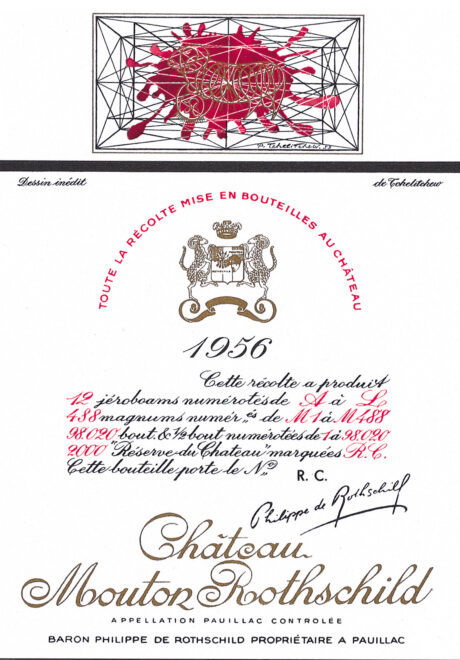 P. Tchelitchew. 53
Dessin inédit
de Tchelitchew
TOUTE LA RÉCOLTE MISE EN BOUTEILLES AU CHÂTEAU
1956
Cette récolte a produit
12 jéroboams numérotés de A à L
488 magnums numér„és de M1 à M488
98.020 bout. & ½ bout numérotées de 1 à 98.020
2000 "Réserve du Chateau" marquées R.C.
Cette bouteille porte le Nº R. C.
Philippe de Rothschild
Château
Mouton Rothschild
APPELLATION PAUILLAC CONTROLÉE
BARON PHILIPPE DE ROTHSCHILD PROPRIÉTAIRE A PAUILLAC